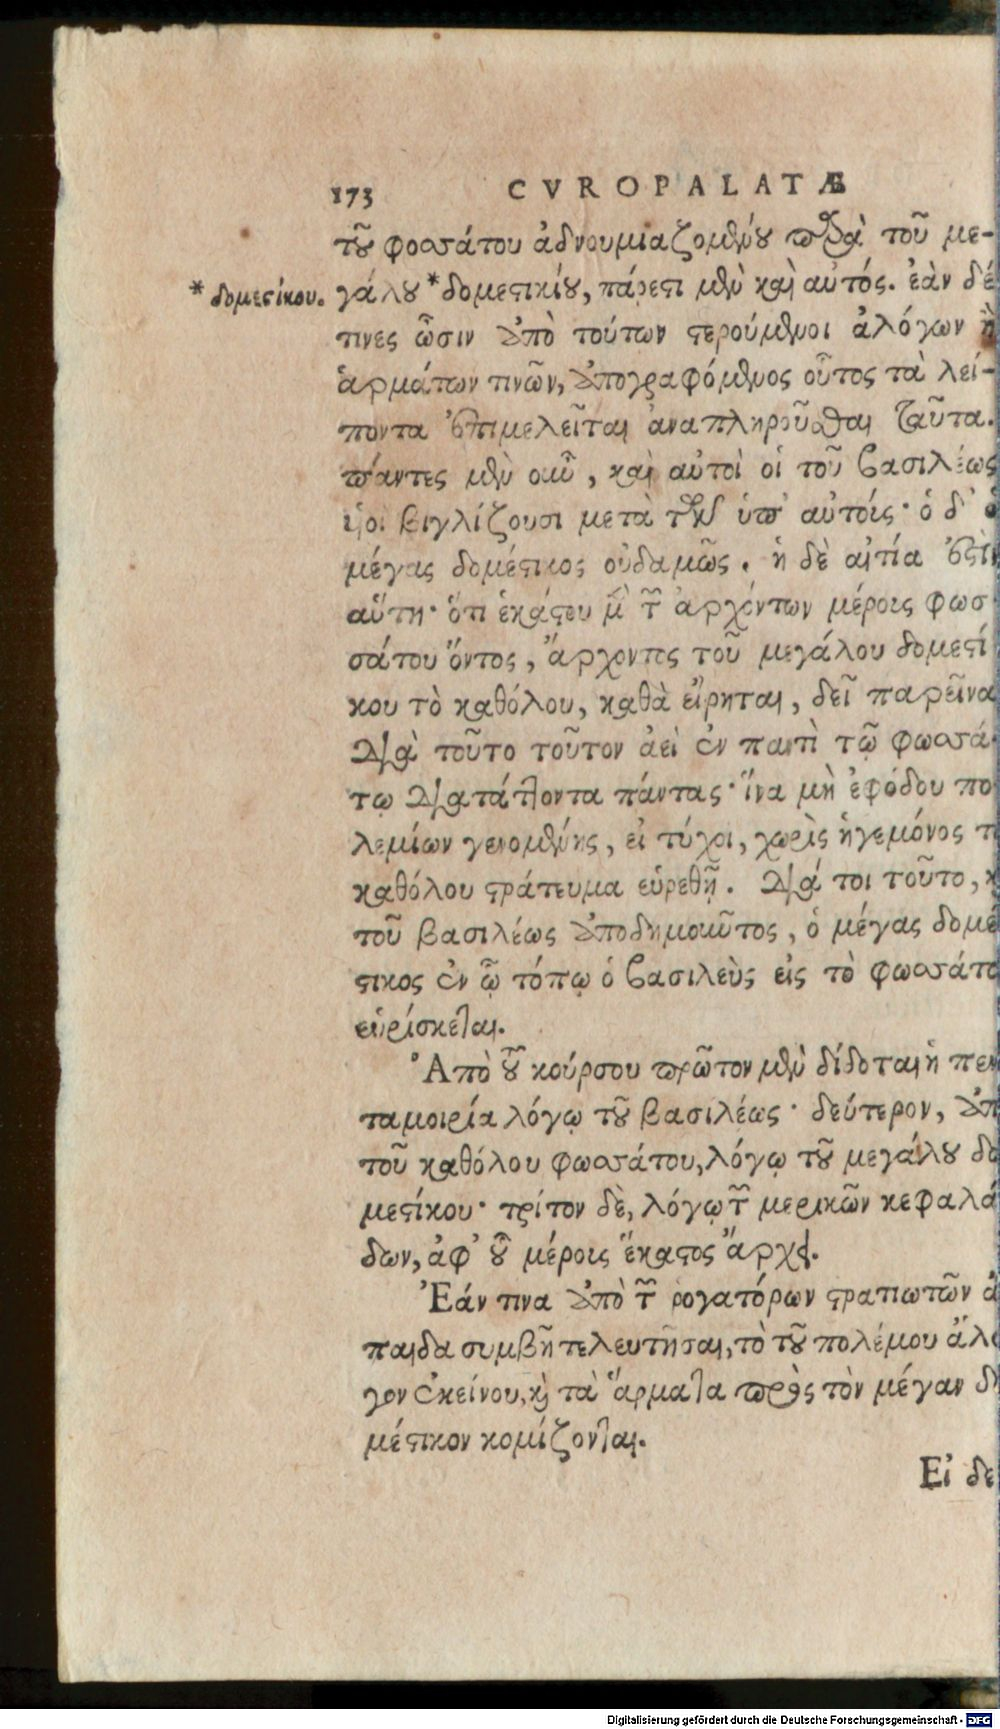 173 CVROPALATÆ
τοῦ φοσσάτου ἀδνουμιαζομένου παρὰ τοῦ με-
* δομεστίκου. γάλου *δομεστικίου, πάρεστι μὲν καὶ αὐτός. ἐὰν δέ
τινες ὦσιν ἀπὸ τούτων στερούμενοι ἀλόγων ἢ
ἁρμάτων τινῶν, ἀπογραφόμενος οὗτος τὰ λεί-
ποντα ἐπιμελεῖται ἀναπληροῦσθαι ταῦτα.
πάντες μὲν οὖν, καὶ αὐτοὶ οἱ τοῦ βασιλέως
υἱοὶ βιγλίζουσι μετὰ τῶν ὑπ' αὐτοῖς· ὁ δ' ὁ
μέγας δομέστικος οὐδαμῶς. ἡ δὲ αἰτία ἐστὶν
αὕτη· ὅτι ἑκάστου μὲν τῶν ἀρχόντων μέροις φωσ
σάτου ὄντος, ἄρχοντος τοῦ μεγάλου δομεστί
κου τὸ καθόλου, καθὰ εἴρηται, δεῖ παρεῖνα
διὰ τοῦτο τοῦτον ἀεὶ ἐν παντὶ τῷ φωσσά-
τῳ διατάττοντα πάντας· ἵνα μὴ ἐφόδου πο
λεμίων γενομένης, εἰ τύχοι, χωρὶς ἡγεμόνος τ
καθόλου στράτευμα εὑρεθῇ. διά τοι τοῦτο, κ
τοῦ βασιλέως ἀποδημοῦντος, ὁ μέγας δομέ
στικος ἐν ᾧ τόπῳ ὁ βασιλεὺς εἰς τὸ φωσσάτο
εὑρίσκεται.
Ἀπὸ τοῦ κούρσου πρῶτον μὲν δίδοται ἡ πεν
ταμοιρία λόγῳ τοῦ βασιλέως· δεύτερον, ἀπ
τοῦ καθόλου φωσσάτου, λόγῳ τοῦ μεγάλου δο
μεστίκου· τρίτον δὲ, λόγῳ τῶν μερικῶν κεφαλά
δων, ἀφ' οὗ μέροις ἕκαστος ἄρχει.
Ἐάν τινα ἀπὸ τῶν ῥογατόρων στρατιωτῶν ἀ
παιδα συμβῇ τελευτῆσαι, τὸ τοῦ πολέμου ἄλο
γον ἐκείνου, καὶ τὰ ἅρματα πρὸς τὸν μέγαν δο
μέστικον κομίζονται.
Εἰ δε
Digitalisierung gefördert durch die Deutsche Forschungsgemeinschaft - DFG